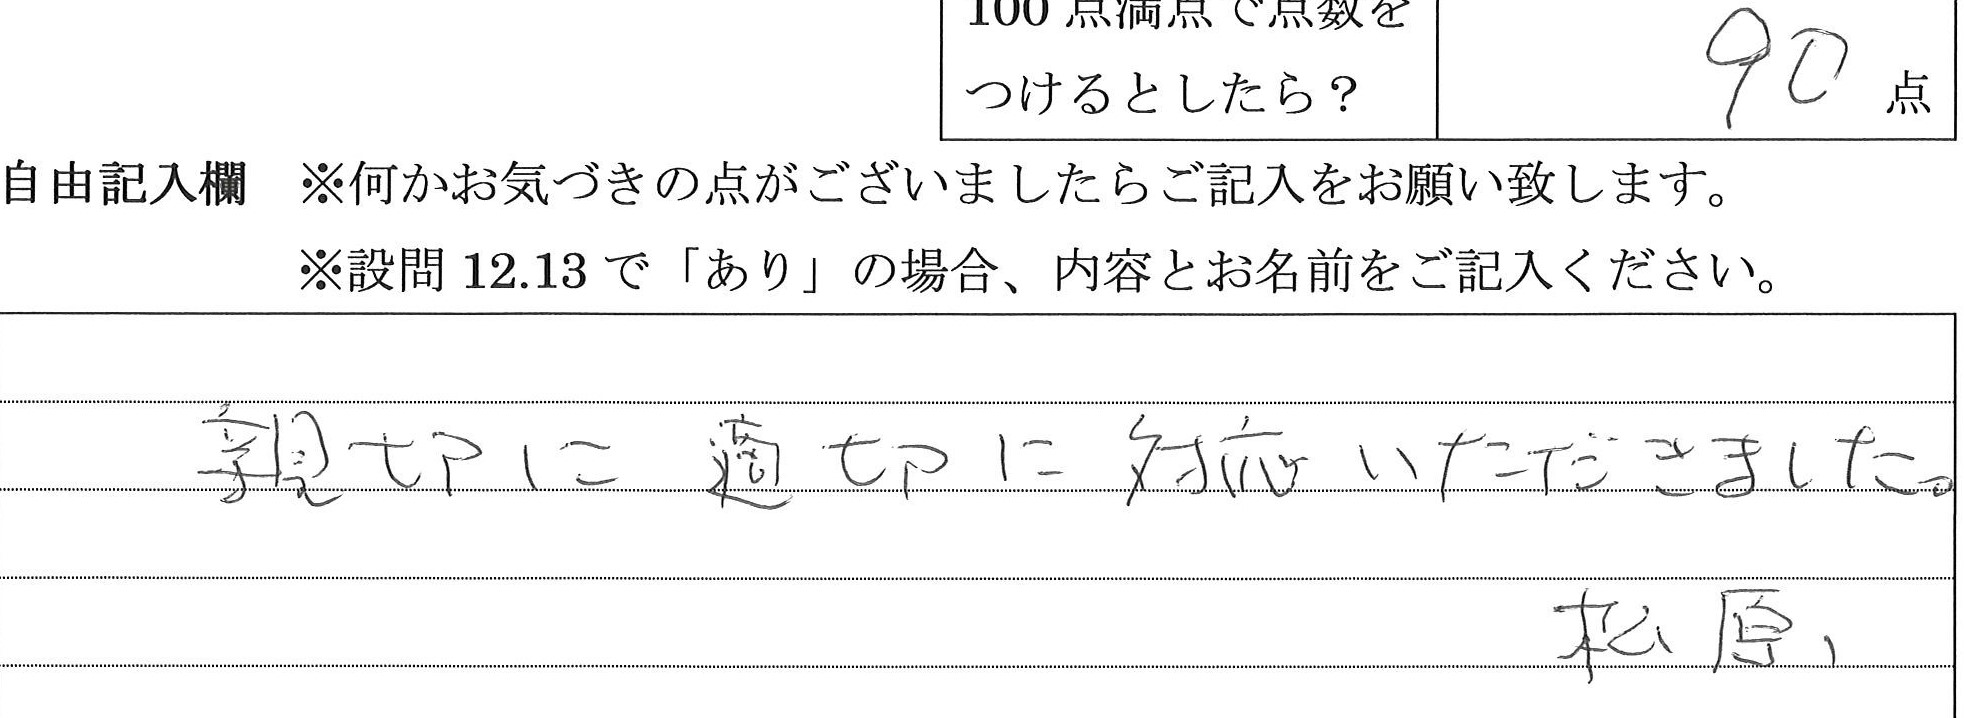 100 点満点で点数を
つけるとしたら？
90 点
自由記入欄 ※何かお気づきの点がございましたらご記入をお願い致します。
※設問 12.13 で「あり」の場合、内容とお名前をご記入ください。
親切に適切に対応いただきました。
松原